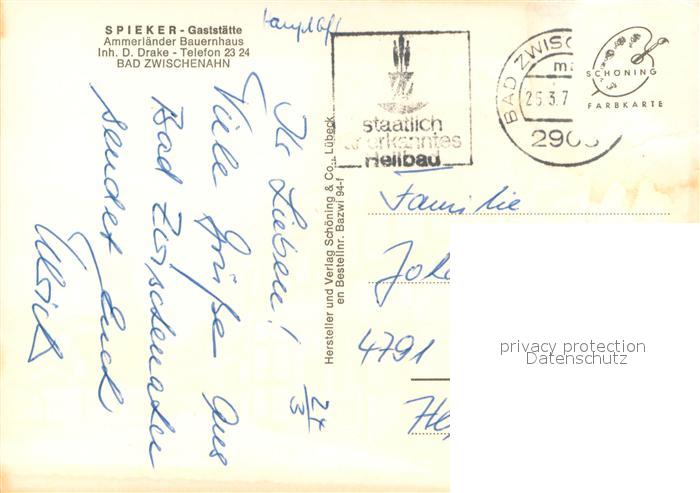 SPIEKER - Gaststätte
Ammerländer Bauernhaus
Inh. D. Drake - Telefon 23 24
BAD ZWISCHENAHN
staatlich
anerkanntes
Heilbad
BAD ZWISC
26.3.7
2903
SCHÖNING
FARBKARTE
24/3
Ihr Lieben!
Viele Grüße aus
Bad Zwischenahn
sendet Euch
Ulrich
Hersteller und Verlag Schöning & Co., Lübeck
en Bestellnr. Bazwi 94-f
Familie
Joh
4791
He
privacy protection
Datenschutz